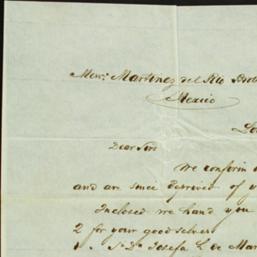 Mess: Martinez del Rio Bro
Mexico
Lo
Dear Sirs
We confirm
and are since deprived of y
Inclosed we hand you
2 for your good selves
" Da Josefa L. de Mar